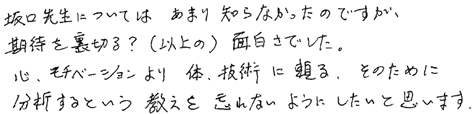 坂口先生については あまり 知らなかったのですが、
期待を裏切る？(以上の) 面白さでした。
心、モチベーションより 体、技術に 頼る、そのために
分析するという 教えを 忘れないようにしたいと思います。